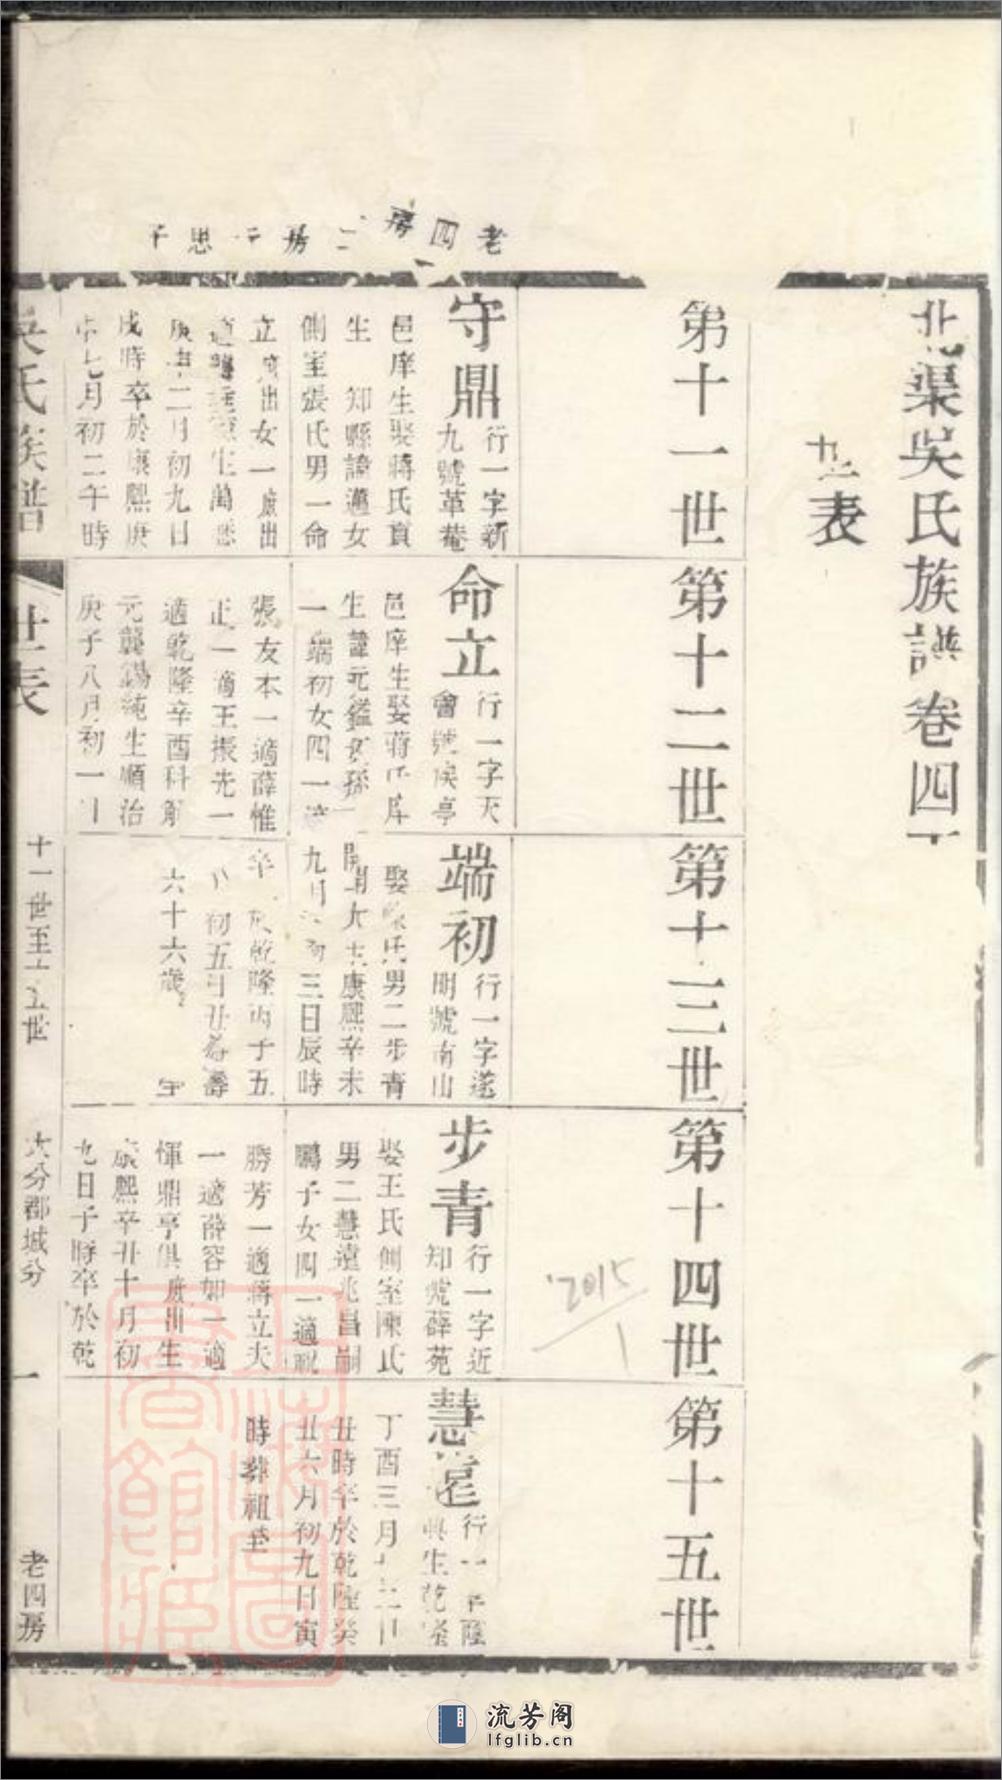 北渠吳氏族譜卷四下
世表
第十一世
第十二世
第十三世
第十四世
第十五世
老四房
二房
思
守鼎
行一字新
九號革菴
邑庠生娶蔣氏貢
生 知縣諱邁女
側室張氏男一命
立 庶出女一庶出
生萬曆
庚申二月初九日
戌時卒於康熙庚
申七月初二午時
命立
行一字天
會號侯亭
邑庠生娶蔣氏庠
生諱元鑑女孫
一端初女四一適
張友本一適薛惟
正一適王振先一
適乾隆辛酉科解
元龔錫純生順治
庚子八月初一日
端初
行一字遂
明號南山
娶 氏男二步青
康熙辛未
九月初三日辰時
卒於乾隆丙子五
八初五日丑時壽
六十六歲
步青
行一字近
知號薛苑
娶王氏側室陳氏
男二慧遠兆昌嗣
鵬子女四一適祝
勝芳一適蔣立夫
一適薛容如一適
惲鼎亨俱庶出生
康熙辛丑十月初
九日子時卒於乾
慧遠
行一字隆
興生乾隆
丁酉三月十三日
丑時卒於乾隆癸
丑六月初九日寅
時葬祖塋
吳氏族譜
世表
十一世至十五世
大分郡城分
一
老四房
2015
1
流芳阁
lfglib.cn